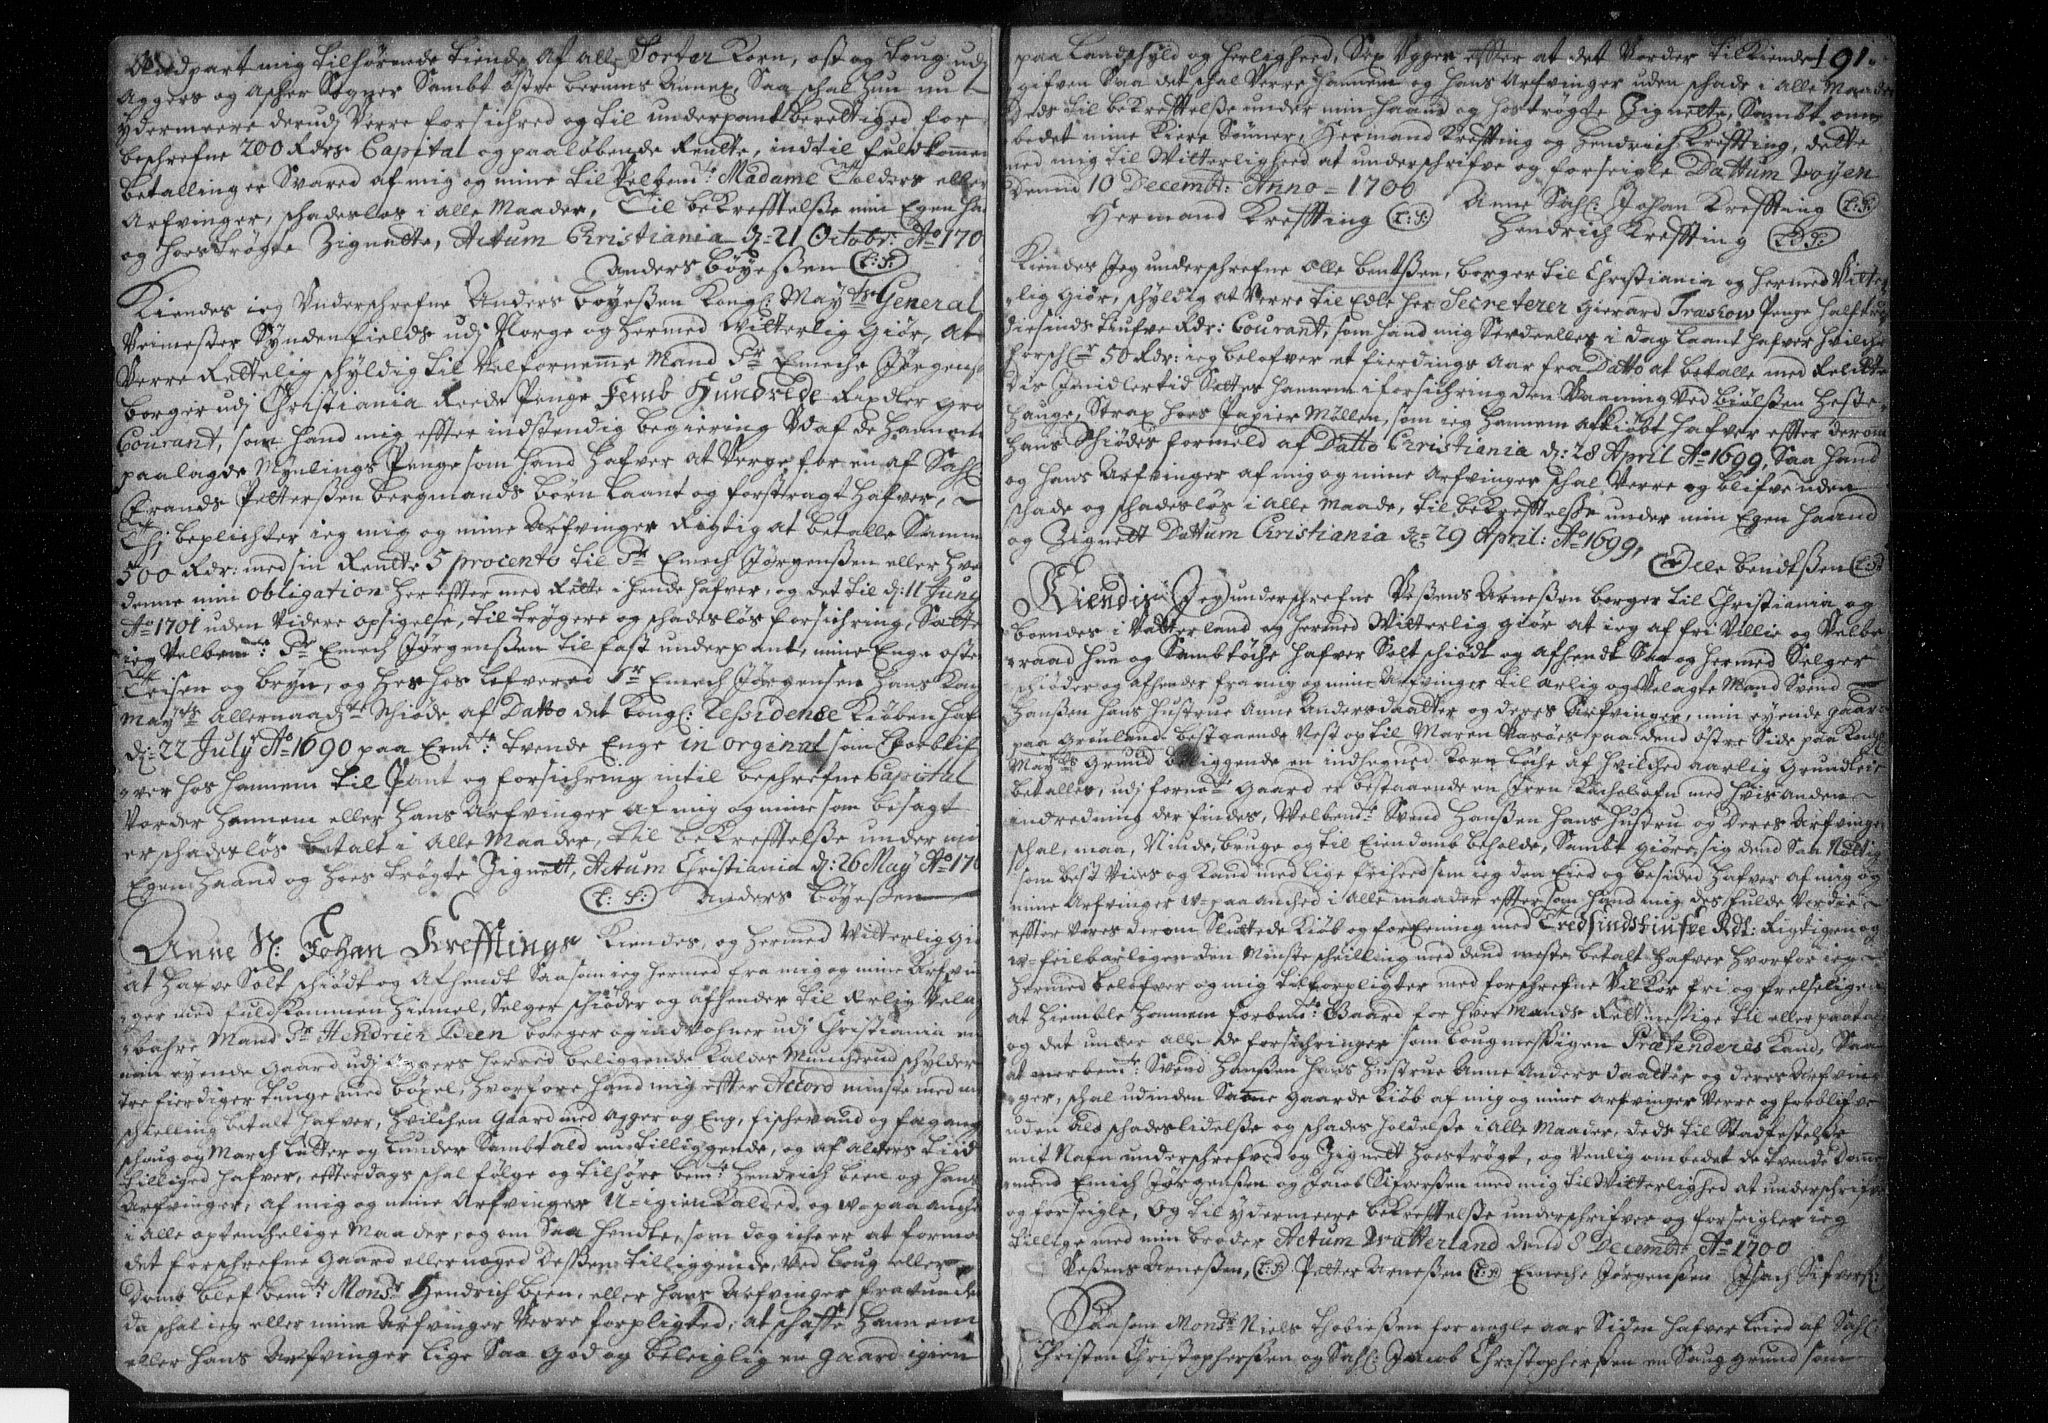 Andpart mig tilhørende tiende af alle Sorter Korn, ost og toug: udj
Aggers og Ascher Sogner Sambt østre berums Annex, Saa schal hun nu
ydermeere derudj Verre forsichred og til underpant berettiged for
beschrefne 200 Rdrs Capital og paaløbende Rentte, indtil fuldkommen
betalling er Svared af mig og mine til Velbemte: Madame Tolders eller
Arfvinger, schadesløs i alle Maader, Til bekrefftelsße min Egen haa
og hoestrøgte Zignette, Actum Christiania d: 21 Octobr: Ao 170
Anders böyeßen (L:S:)
Kiendes ieg Underschrefne Anders böyeßen Kongl: Mayts General
Veimester Synden fields udj Norge og hermed Witterlig giør, At
Verre Rettelig schyldig til Velfornemme Mand Sr Emeche Jørgens
borger udj Christiania Reede Penge Femb Hundrede Rixdler gro
Courant, som hand mig effter indstendig begiering Udaf de hannem
paalagde Mynlings Penge som hand hafver at Verge for en af Sahl:
Frands Petterßen bergmands børn Laant og forstragt hafver,
Thj beplichter ieg mig og mine Arfvinger Rigtig at betalle Samme
500 Rdr: med sin Rentte 5 procento til Sr Emech Jørgenßen eller hve
denne min obligation her effter med Rette i hende hafver, og det til d: 11 Juny
Ao 1701 uden Videre opsigelse, til trøgere og schadesløs forsichring, Sætte
ieg Velbemte: Sr Emech Jørgenßen til fast underpant, mine Enge øste
Teisen og bryn, og hes hos lefvered Sr Emech Jørgensen Hans Kon
Mayts Allernaadste Schiøde, af Datto det Kongl: Ressidence Kiøbenhaf
d: 22 July Ao 1690 paa Ermte: tvende Enge in orginal som forblif
-ver hos hannem til Pant og forsichring intil beschrefne Capital
Vorder hannem eller hans Arfvinger af mig og mine som besagt
er schadesløs betalt i alle Maader, til bekrefftelße under min
Egen Haand og hoes trøgte Zignett, Actum Christiania d: 26 May Ao 170
(L:S:) Anders böyeßen
Anne Sl: Johan Krefftings Kiendes, og hermed Witterlig giø
at hafve Solt schiødt og Afhendt Saasom ieg hermed fra mig og mine Arfvin
-ger med fuldkommen hiemmel, Selger schiøder og afhender til Ærlig Vela
-bahre Mand Sr Hendrich Been borger og indvohner udj Christiania en
min eyende gaard udj Aggers herred beliggende Kaldes Muncherud schylder
tre fierdiger tunge med bøxel, hvorfore hand mig efter Accord minste med m
schielling betalt hafver, hvilchen Gaard med agger og Eng, fischevand og fægang
schoug og March Lutter og Lunder Sambt ald mit tilliggende, og af alders tiid
tilliged hafver, effterdags schal følge og tilhøre bemte: Hendrich been og hans
Arfvinger, af mig og mine Arfvinger U-igienkalled, og u-paaanche
i alle optenchelige Maader, og om Saa hendte, som dog iche er at formo
det forschrefne Gaard eller noged deßen tilliggende, ved Loug eller
Domb blef bemte: Monsr Hendrich been, eller hans Arfvinger fravunden
da schal ieg eller mine Arfvinger Verre forpligted, at schaffe hannem
eller hans Arfvinger lige Saa god og beleiglig en gaard igien
191.
paa Landschyld og herlighed, Sex Uger effter at det Vorder tilkiende
gifven Saa det schal Verre hannem og hans Arfvinger uden schade i alle Maader
Deds til bekrefftelße under min haand og hostrøgte Zignette, Sambt om
bedet mine Kiere Sønner, Hermand Kreffting og Hendrich Kreffting, dette
med mig til Witterlighed at underschrifve og forseigle Dattum Woyen
Dennd 10 Decembr: Anno = 1700 Anne Sahl: Johan Kreffting (L:S:)
Hermand Kreffting (L:S:) Hendrich Kreffting (L:S:)
Kiendes Jeg underschrefne Olle bentßen, borger til Christiania og hermed Vitter
-lig giør, schyldig at Verre til Edle her Secreterer Gierard Traskow Penge halftre
diesinds tiufve Rdr: Courant, som hand mig Serdeelles i dag Laant hafver hvilche
forschr: 50 Rdr: ieg belofver et fierdings Aar fra Datto at betalle med Rentte
Dis Imidlertid Settes hannem i forsichring den Vaaning Ved biølßen Heste
hauge, Strax hoes Papier Møllen, som ieg hannem afkiøbt hafver effter derom
hans Schiødes formeld af Datto Christiania d: 28 April Ao 1699, Saa hand
og hans Arfvinger af mig og mine Arfvinger schal Verre og blifve uden
schade og schadesløs i alle Maade, til bekrefftelße under min Egen haand
og Zignett Dattum Christiania d= 29 April: Ao 1699,
Olle bendtßen (L:S:)
Kiendis Jeg underschrefne Veßens Arneßen borger til Christiania og
boendes i Vatterland og hermed Witterlig giør at ieg af fri Villie og Velbe
-raad hue og Sambtøche hafver Solt schiødt og afhendt Saa og hermed Selger
schiøder og afhender fra mig og mine Arfvinger til Ærlig og Velagte Mand Svend
Hanßen hans Hustrue Anne Andersdaatter og deres Arfvinger, min eyende gaard
paa Grønland bestaaende Vest op til Maren Vasøes, paa dend østre Side paa Kongl:
Mayts Grund beliggende en indhegned Korn løche af hvilched aarlig Grundleie
betalles, udj fornte Gaard er bestaaende en Jern Kachelofn med hvis anden
indredning der findes, Welbemte Svend Hanßen hans Hustru og Deres Arfvinger
schal, maa, Niude, bruge og til Eiendomb beholde, Sambt giøre sig dend Saa Nøttig
som best Vides og Kand med lige friheed som ieg den Eied og besided hafver af mig og
mine Arfvinger u-paa anched i alle maader effter som hand mig des fulde Verdie
effter Vores derom Sluttede Kiøb og forEening med Tredsindstiufve Rdr: Rigtigen og
u-feilbarligen den Minste schilling med dend meste betalt hafver hvorfor ieg
hermed belofver og mig tilforpligter med forschrefne Vilkor fri og frelseligen
at hiemble hannem forbemte Gaard for hver Mands Rettmessige til eller paatal
og det under alle de forsichringer som Lougmeßigen Prætenderes Kand, Saa
at merbemte: Svend Hanßen hans Hustrue Anne Andersdaatter og deres Arfvin
-ger, schal udinden Samme gaards Kiøb af mig og mine Arfvinger Verre og forblifve
uden ald schadeslidelße og schades holdelße i alle Maader, deds til Stadfestelße
mit Nafn underschrefved og Zignett hoestrøgt, og Venlig ombedet de tvende Danne
-mend Emich Jørgenßen og Jacob Sifverßen med mig til Witterlighed at underschrifve
og forseigle, Og til ydermeere bekrefftelße underschrifver og forseigler ieg
tillige med min broder Actum Watterland dend 8 Decembr Ao 1700
Veßens Arneßen, (L:S:) Petter Arneßen (L:S:) Emeche Jørgenßen Isach Sifverß:
Saasom Monsr Niels Thobießen for nogle aar Siden hafver Leied af Sahl:
Christen Christopherßen og Sahl: Jacob Christopherßen en Saug grund som